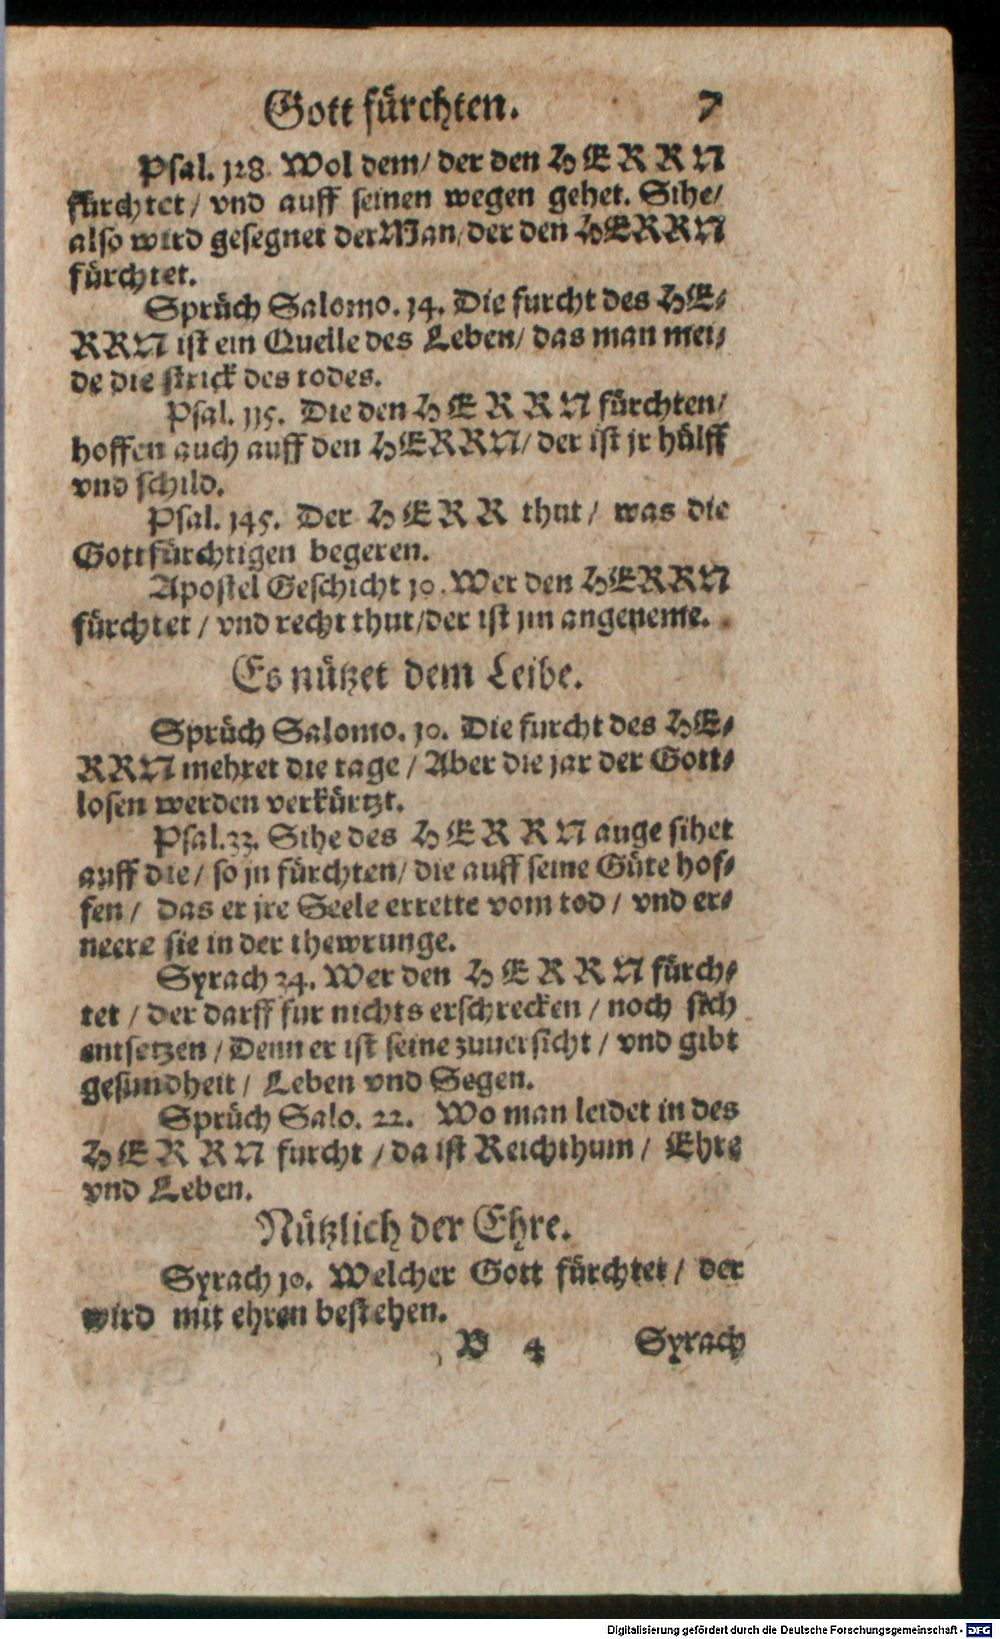 Gott fürchten. 7
Psal. 128. Wol dem/ der den HERRN
fürchtet/ vnd auff seinen wegen gehet. Sihe/
also wird gesegnet der Man/ der den HERRN
fürchtet.
Sprüch Salomo. 14. Die furcht des HE-
RRN ist ein Quelle des Leben/ das man mei-
de die strick des todes.
Psal. 115. Die den HERRN fürchten/
hoffen auch auff den HERRN/ der ist jr hülff
vnd schild.
Psal. 145. Der HERR thut/ was die
Gottfürchtigen begeren.
Apostel Geschicht 10. Wer den HERRN
fürchtet/ vnd recht thut/ der ist jm angeneme.
Es nützet dem Leibe.
Sprüch Salomo. 10. Die furcht des HE-
RRN mehret die tage/ Aber die jar der Gott-
losen werden verkürtzt.
Psal. 33. Sihe des HERRN auge sihet
auff die/ so jn fürchten/ die auff seine Güte hof-
fen/ das er jre Seele errette vom tod/ vnd er-
neere sie in der thewrunge.
Syrach 34. Wer den HERRN fürch-
tet/ der darff fur nichts erschrecken/ noch sich
entsetzen/ Denn er ist seine zuuersicht/ vnd gibt
gesundheit/ Leben vnd Segen.
Sprüch Salo. 22. Wo man leidet in des
HERRN furcht/ da ist Reichthum/ Ehre
vnd Leben.
Nützlich der Ehre.
Syrach 10. Welcher Gott fürchtet/ der
wird mit ehren bestehen.
B 4 Syrach
Digitalisierung gefördert durch die Deutsche Forschungsgemeinschaft - DFG